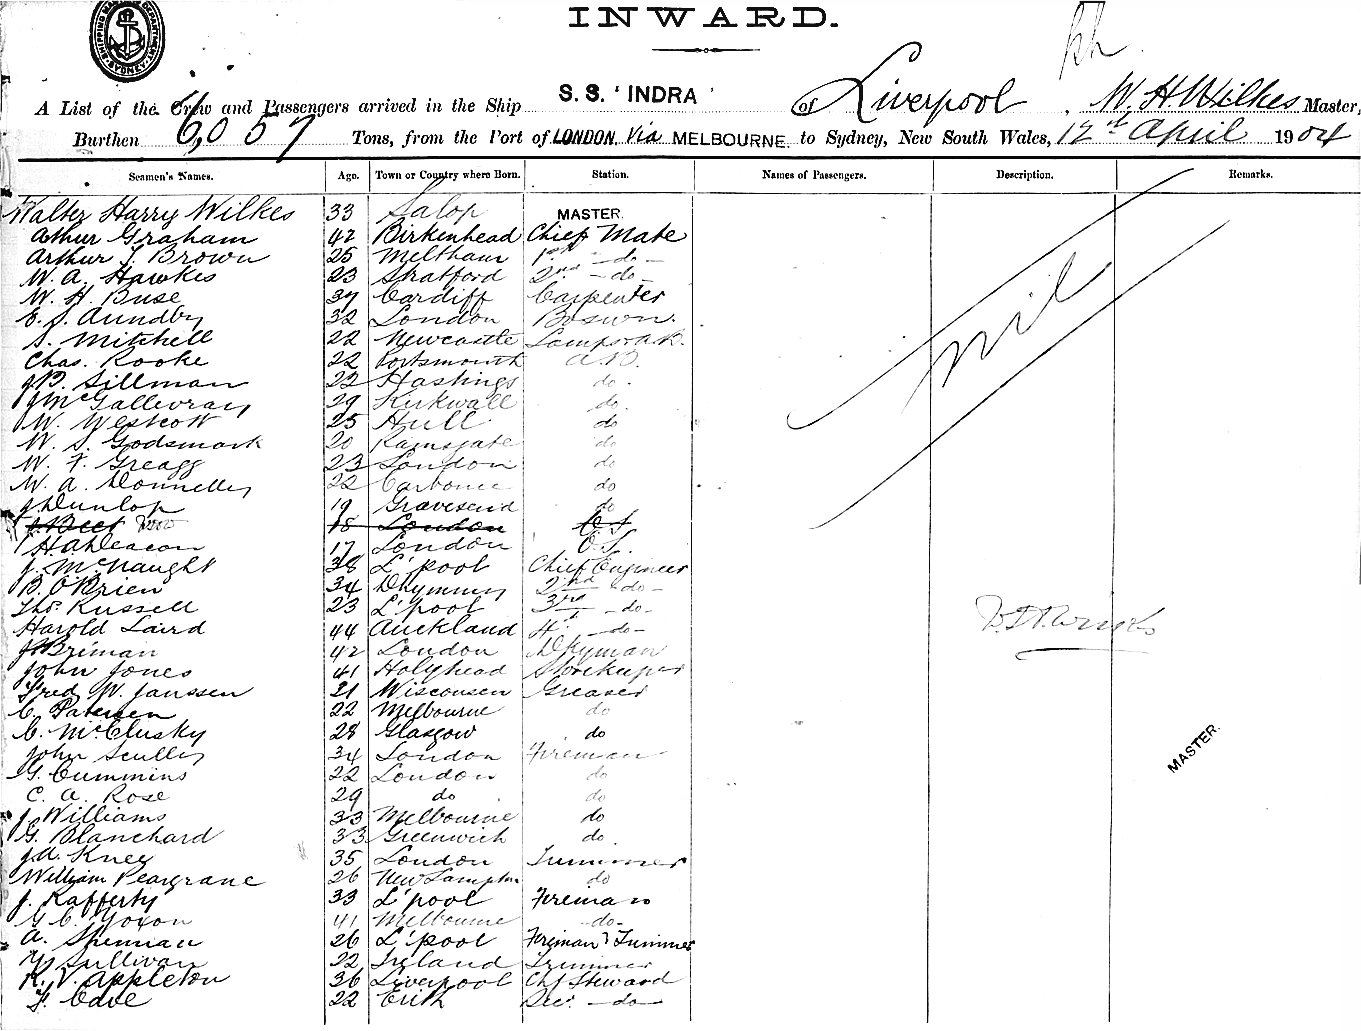 SHIPPING MASTERS DEPARTMENT SYDNEY
INWARD.
A List of the Crew and Passengers arrived in the Ship S.S. 'INDRA' of Liverpool, W. H. Wilkes Master,
Burthen 6,057 Tons, from the Port of LONDON Via MELBOURNE to Sydney, New South Wales, 12th April 1904
Seamen's Names. Age. Town or Country where Born. Station. Names of Passengers. Description. Remarks.
Walter Harry Wilkes 33 Salop MASTER.
Arthur Graham 42 Birkenhead Chief Mate
Arthur J. Brown 25 Meltham 1st -do-
W. A. Hawkes 23 Stratford 2nd -do-
W. H. Buse 37 Cardiff Carpenter
E. S. Aundby 32 London Boswn.
S. Mitchell 22 Newcastle Lamps A.B.
Chas. Rooke 22 Portsmouth A.B.
J B. Sillman 22 Hastings do.
J McGallivray 29 Kirkwall do.
W. Westcott 25 Hull do
W. S. Godsmark 20 Ramsgate do
W. F. Greagg 23 London do
W. A. Donnelly 22 Carbonee do
J Dunlop 19 Gravesend do
18 London O S
H. A. Deacon 17 London O.S.
J. McNaught 38 L'pool Chief Engineer
B. O'Brien 34 2nd -do-
Thos. Russell 23 L'pool 3rd -do-
Harold Laird 44 Auckland 4th -do-
J Briman 42 London Dkyman
John Jones 41 Holyhead Storekeeper
Fred W. Janssen 21 Wisconsen Greaser
C. Petersen 22 Melbourne do
C. McClusky 28 Glasgow do
John Scully 34 London Fireman
G. Cummins 22 London do
C. A. Rose 29 do do
J. Williams 33 Melbourne do
G. Blanchard 33 Greenwich do.
J A. Knee 35 London Trimmer
William Peargrane 26 do
J. Rafferty 33 L'pool Fireman
G. C. Yoxon 41 Melbourne -do-
A. Shennan 26 L'pool Fireman & Trimmer
Sullivan 22 Ireland Trimmer
R. V. Appleton 36 Liverpool Chf Steward
F. Cave 22 Erith Sec. -do-
nil
MASTER.